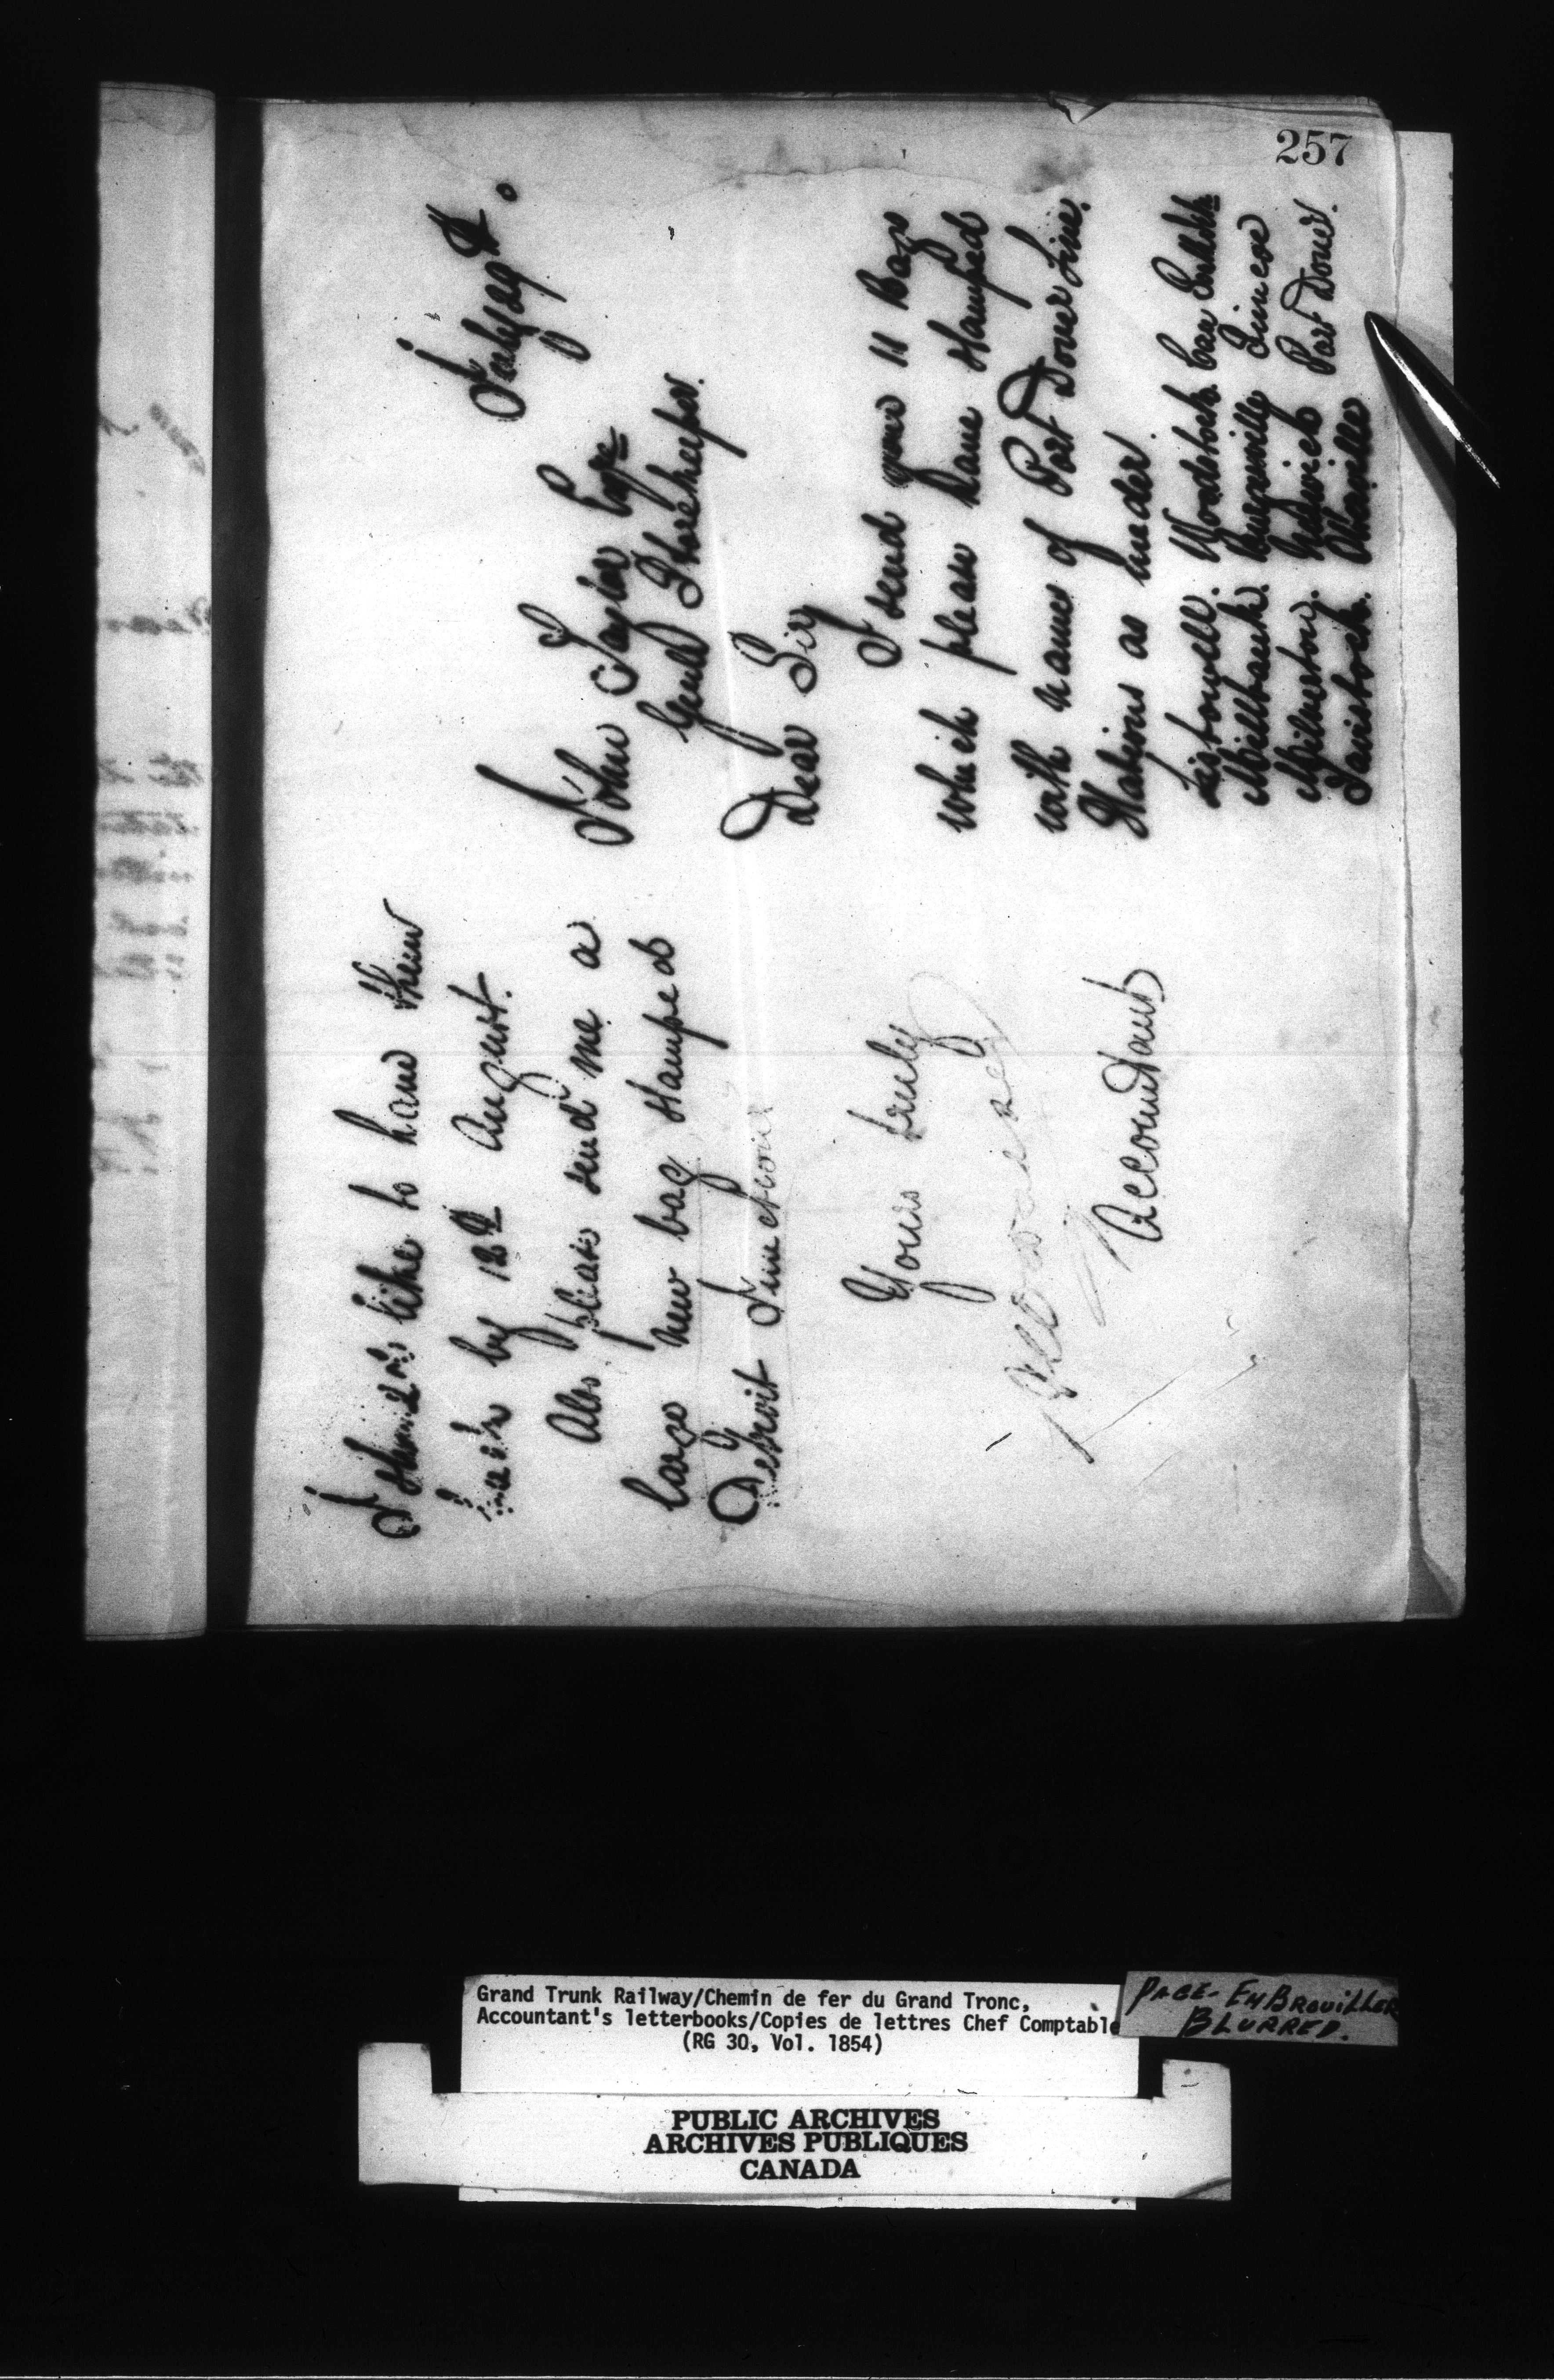 257
July 29th.
John Taylor Esqr
Genl Storekeeper.
Dear Sir
I send you 11 Bags
which please have stamped
with names of Port Dover Line.
Stations as under.
Listowell. Woodstock
Millbank. Burgessville Simcoe
Milverton. Hadwich Port Dover.
Tavistock. Otterville
I should like to have them
back by 12th August.
Also please send me a
large new bag stamped
Detroit Junction
Yours truly
Accountant
Grand Trunk Railway/Chemin de fer du Grand Tronc,
Accountant's letterbooks/Copies de lettres Chef Comptable
(RG 30, Vol. 1854)
PAGE-EMBROUILLER
BLURRED.
PUBLIC ARCHIVES
ARCHIVES PUBLIQUES
CANADA